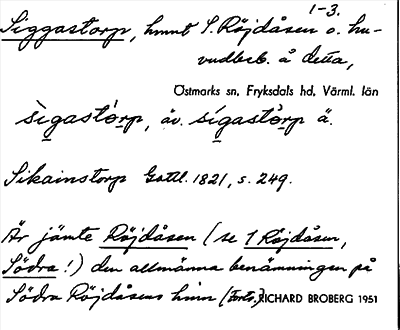 1-3.
Siggastorp, hmnt S. Röjdåsen o. hu-
vudbeb. å detta,
Östmarks sn, Fryksdals hd, Värml. län
sìgastòrp, äv. sígastòrp ä.
Sikainstorp Gottl. 1821, s. 249.
Är jämte Röjdåsen (se 1 Röjdåsen,
Södra!) den allmänna benämningen på
Södra Röjdåsens hmn (Forts.) RICHARD BROBERG 1951